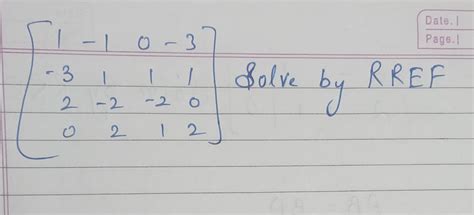 Date. |
Page. |
1 -1 0 -3
-3 1 1 1 Solve by RREF
2 -2 -2 0
0 2 1 2